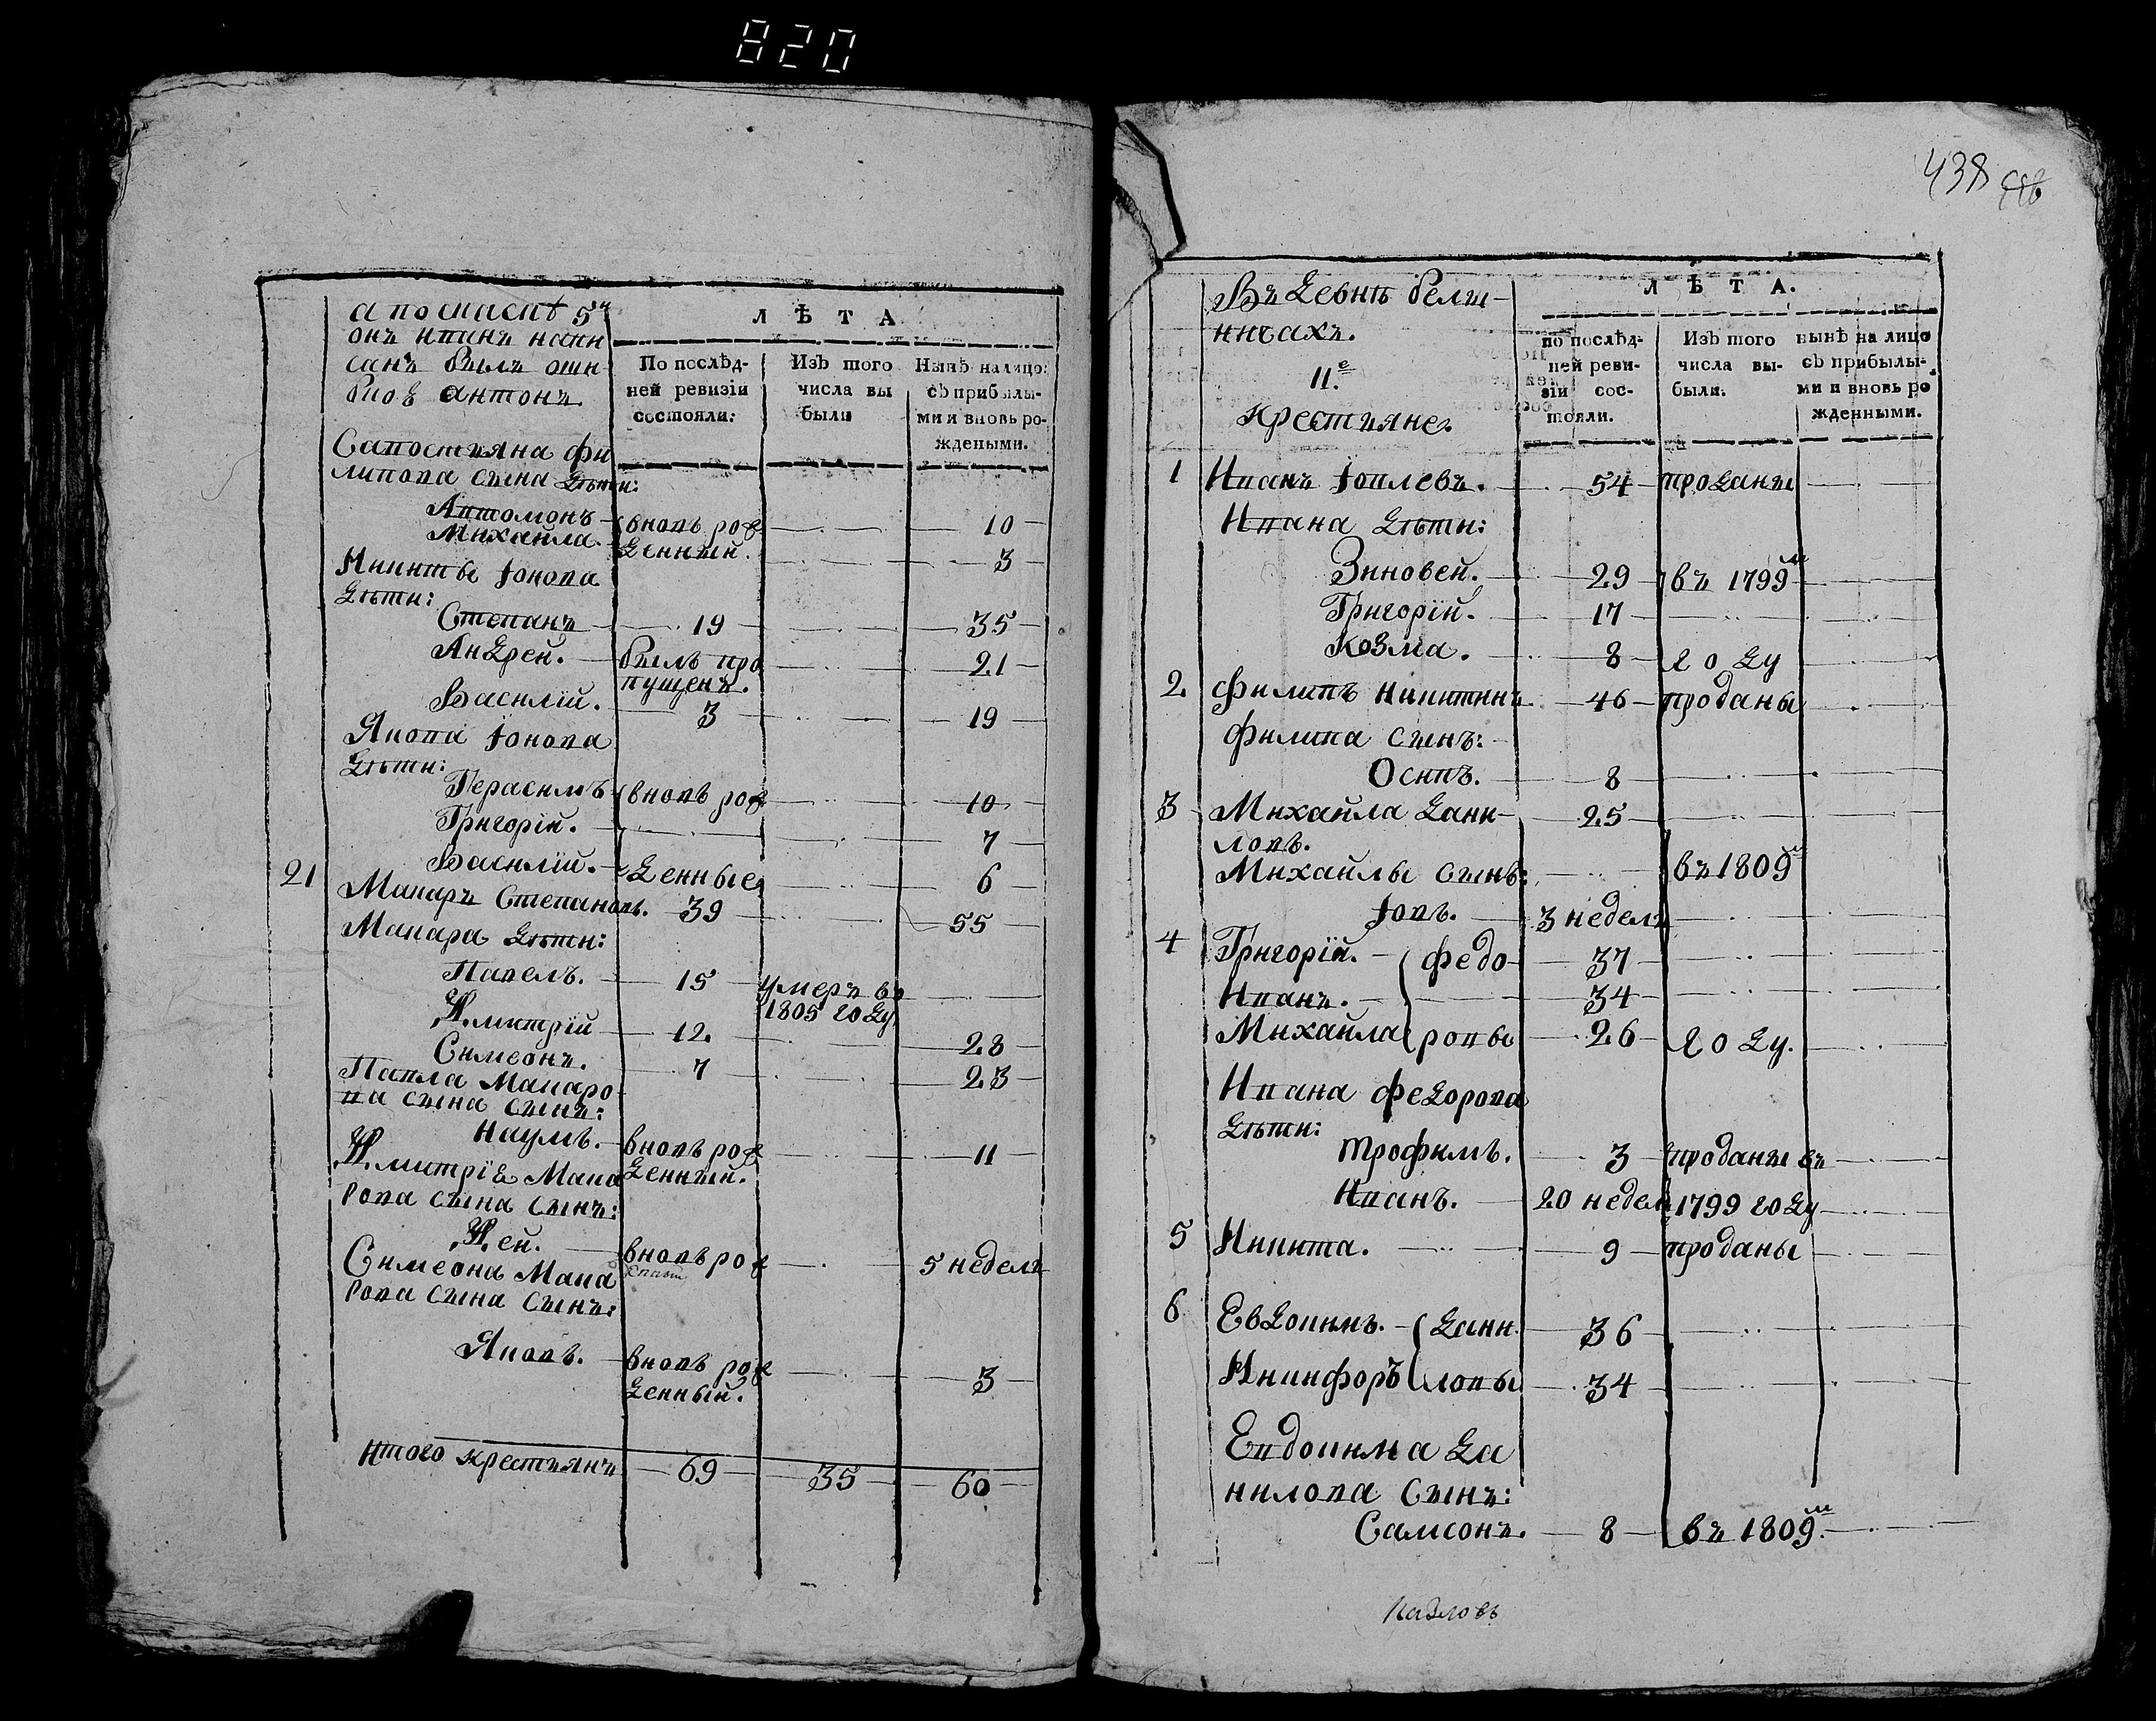 820
а по скаскѣ 5й
онъ Иванъ напи
санъ былъ оши
бкою Антонъ.
Л Ѣ Т А
По послѣд-
ней ревизіи
состояли:
Изъ того
числа вы
были
Нынѣ на лицо:
съ прибылы-
ми и вновь ро-
ждеными.
Савостьяна Фи
липова сына дѣти:
Автомонъ вновь рож 10
Михайла. денныи. 3
Никиты Іонова
дѣти:
Степанъ 19 35
Андрей. былъ про 21
пущенъ.
Василій. 3 19
Якова Іонова
дѣти:
Герасимъ вновь рож 10
Григорій. 7
Василій. денные 6
21 Макаръ Степановъ. 39 55
Макара дѣти:
Павелъ. 15 умеръ въ
1805 году
Дмитрій 12. 28
Симеонъ. 7 23
Павла Макаро
ва сына сынъ:
Наумъ. вновь рож 11
Дмитрія Мака денныи.
рова сына сынъ:
Фей. вновь рож 5 недель
Симеона Мака денныи
рова сына сынъ:
Яковъ. вновь рож 3
денный.
Итого крестьянъ 69 35 60
438
Въ девнѣ Бели-
ничахъ.
II.е
крестьяне.
Л Ѣ Т А.
по послѣд-
ней реви-
зіи сос-
тояли.
Изъ того
числа вы-
были.
нынѣ на лицо
съ прибылы-
ми и вновь ро
жденными.
1 Иванъ Іовлевъ. 54 проданы
Ивана дѣти:
Зиновей. 29 въ 1799м
Григорій. 17
Козма. 8 году
2 Филипъ Никитинъ 46 проданы
Филипа сынъ:
Осипъ. 8
3 Михайла Дани- 25
ловъ.
Михайлы сынъ: въ 1809м
Іовъ. 3 недель
4 Григорій. Федо 37
Иванъ. 34
Михайла ровы 26 году.
Ивана Федорова
дѣти:
Трофимъ. 3 проданы въ
Иванъ. 20 недел 1799 году
5 Никита. 9 проданы
6 Евдокимъ. Дани 36
Никифоръ ловы 34
Евдокима Да
нилова сынъ:
Самсонъ. 8 въ 1809.м
Павловъ